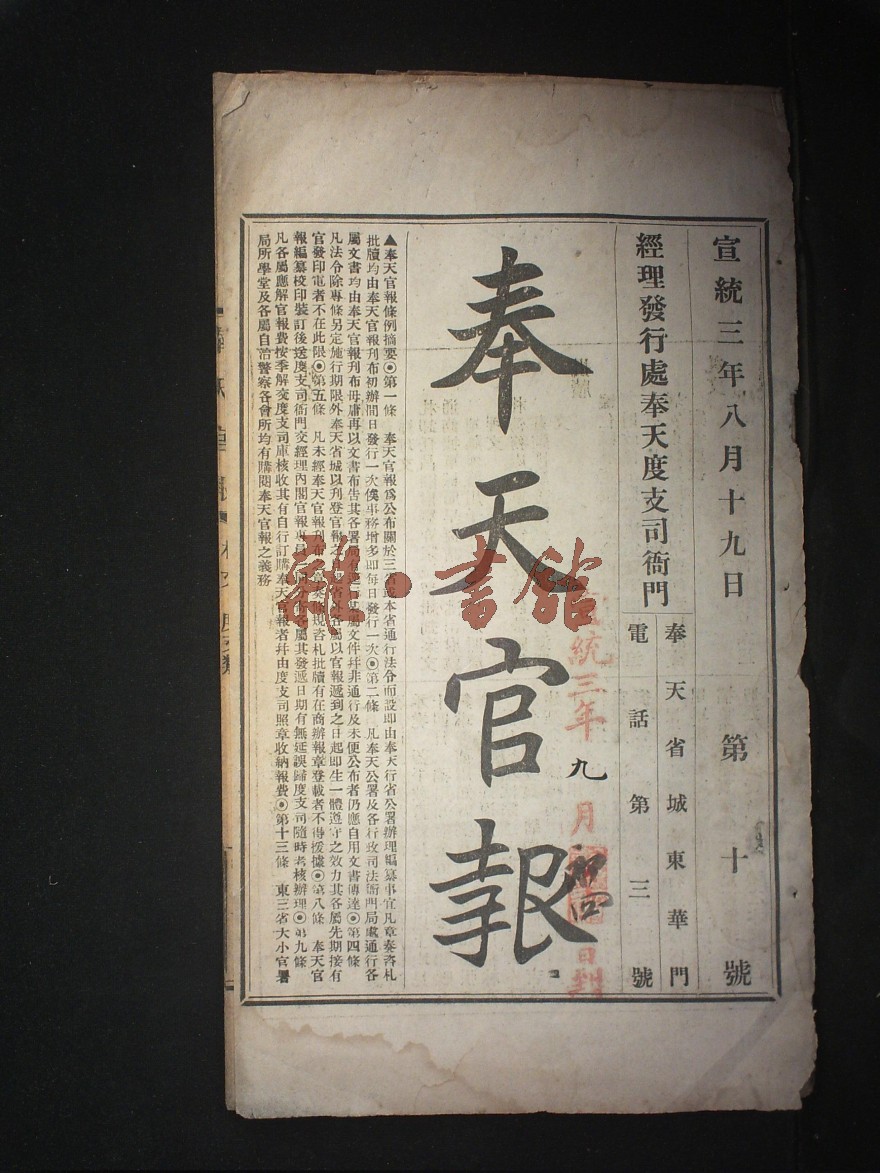 宣統三年八月十九日 第十號
經理發行處奉天度支司衙門
奉天省城東華門
電話第三號
奉天官報
宣統三年九月 日到
▲奉天官報條例摘要◉第一條 奉天官報爲公布關於三省或本省通行法令而設即由奉天行省公署辦理編纂事宜凡章奏咨札
批牘均由奉天官報刊布初辦間日發行一次俟事務增多即每日發行一次◉第二條 凡奉天公署及各行政司法衙門局處通行各
屬文書均由奉天官報刊布毋庸再以文書布告其各署局有 屬文件幷非通行及未便公布者仍應自用文書傳達◉第四條
凡法令除專條另定施行期限外奉天省城以刊登官報之 省外各屬以官報遞到之日起即生一體遵守之效力其各屬先期接有
官發印電者不在此限◉第五條 凡未經奉天官報刊布 章奏條規咨札批牘有在商辦報章登載者不得援據◉第八條 奉天官
報編纂校印裝訂後送度支司衙門交經理內閣官報專員 各屬其發遞日期有無延誤歸度支司隨時考核辦理◉第九條
凡各屬應解官報費按季解交度支司庫核收其有自行訂購奉天官報者幷由度支司照章收納報費◉第十三條 東三省大小官署
局所學堂及各屬自治警察各會所均有購閱奉天官報之義務
雜·書舘